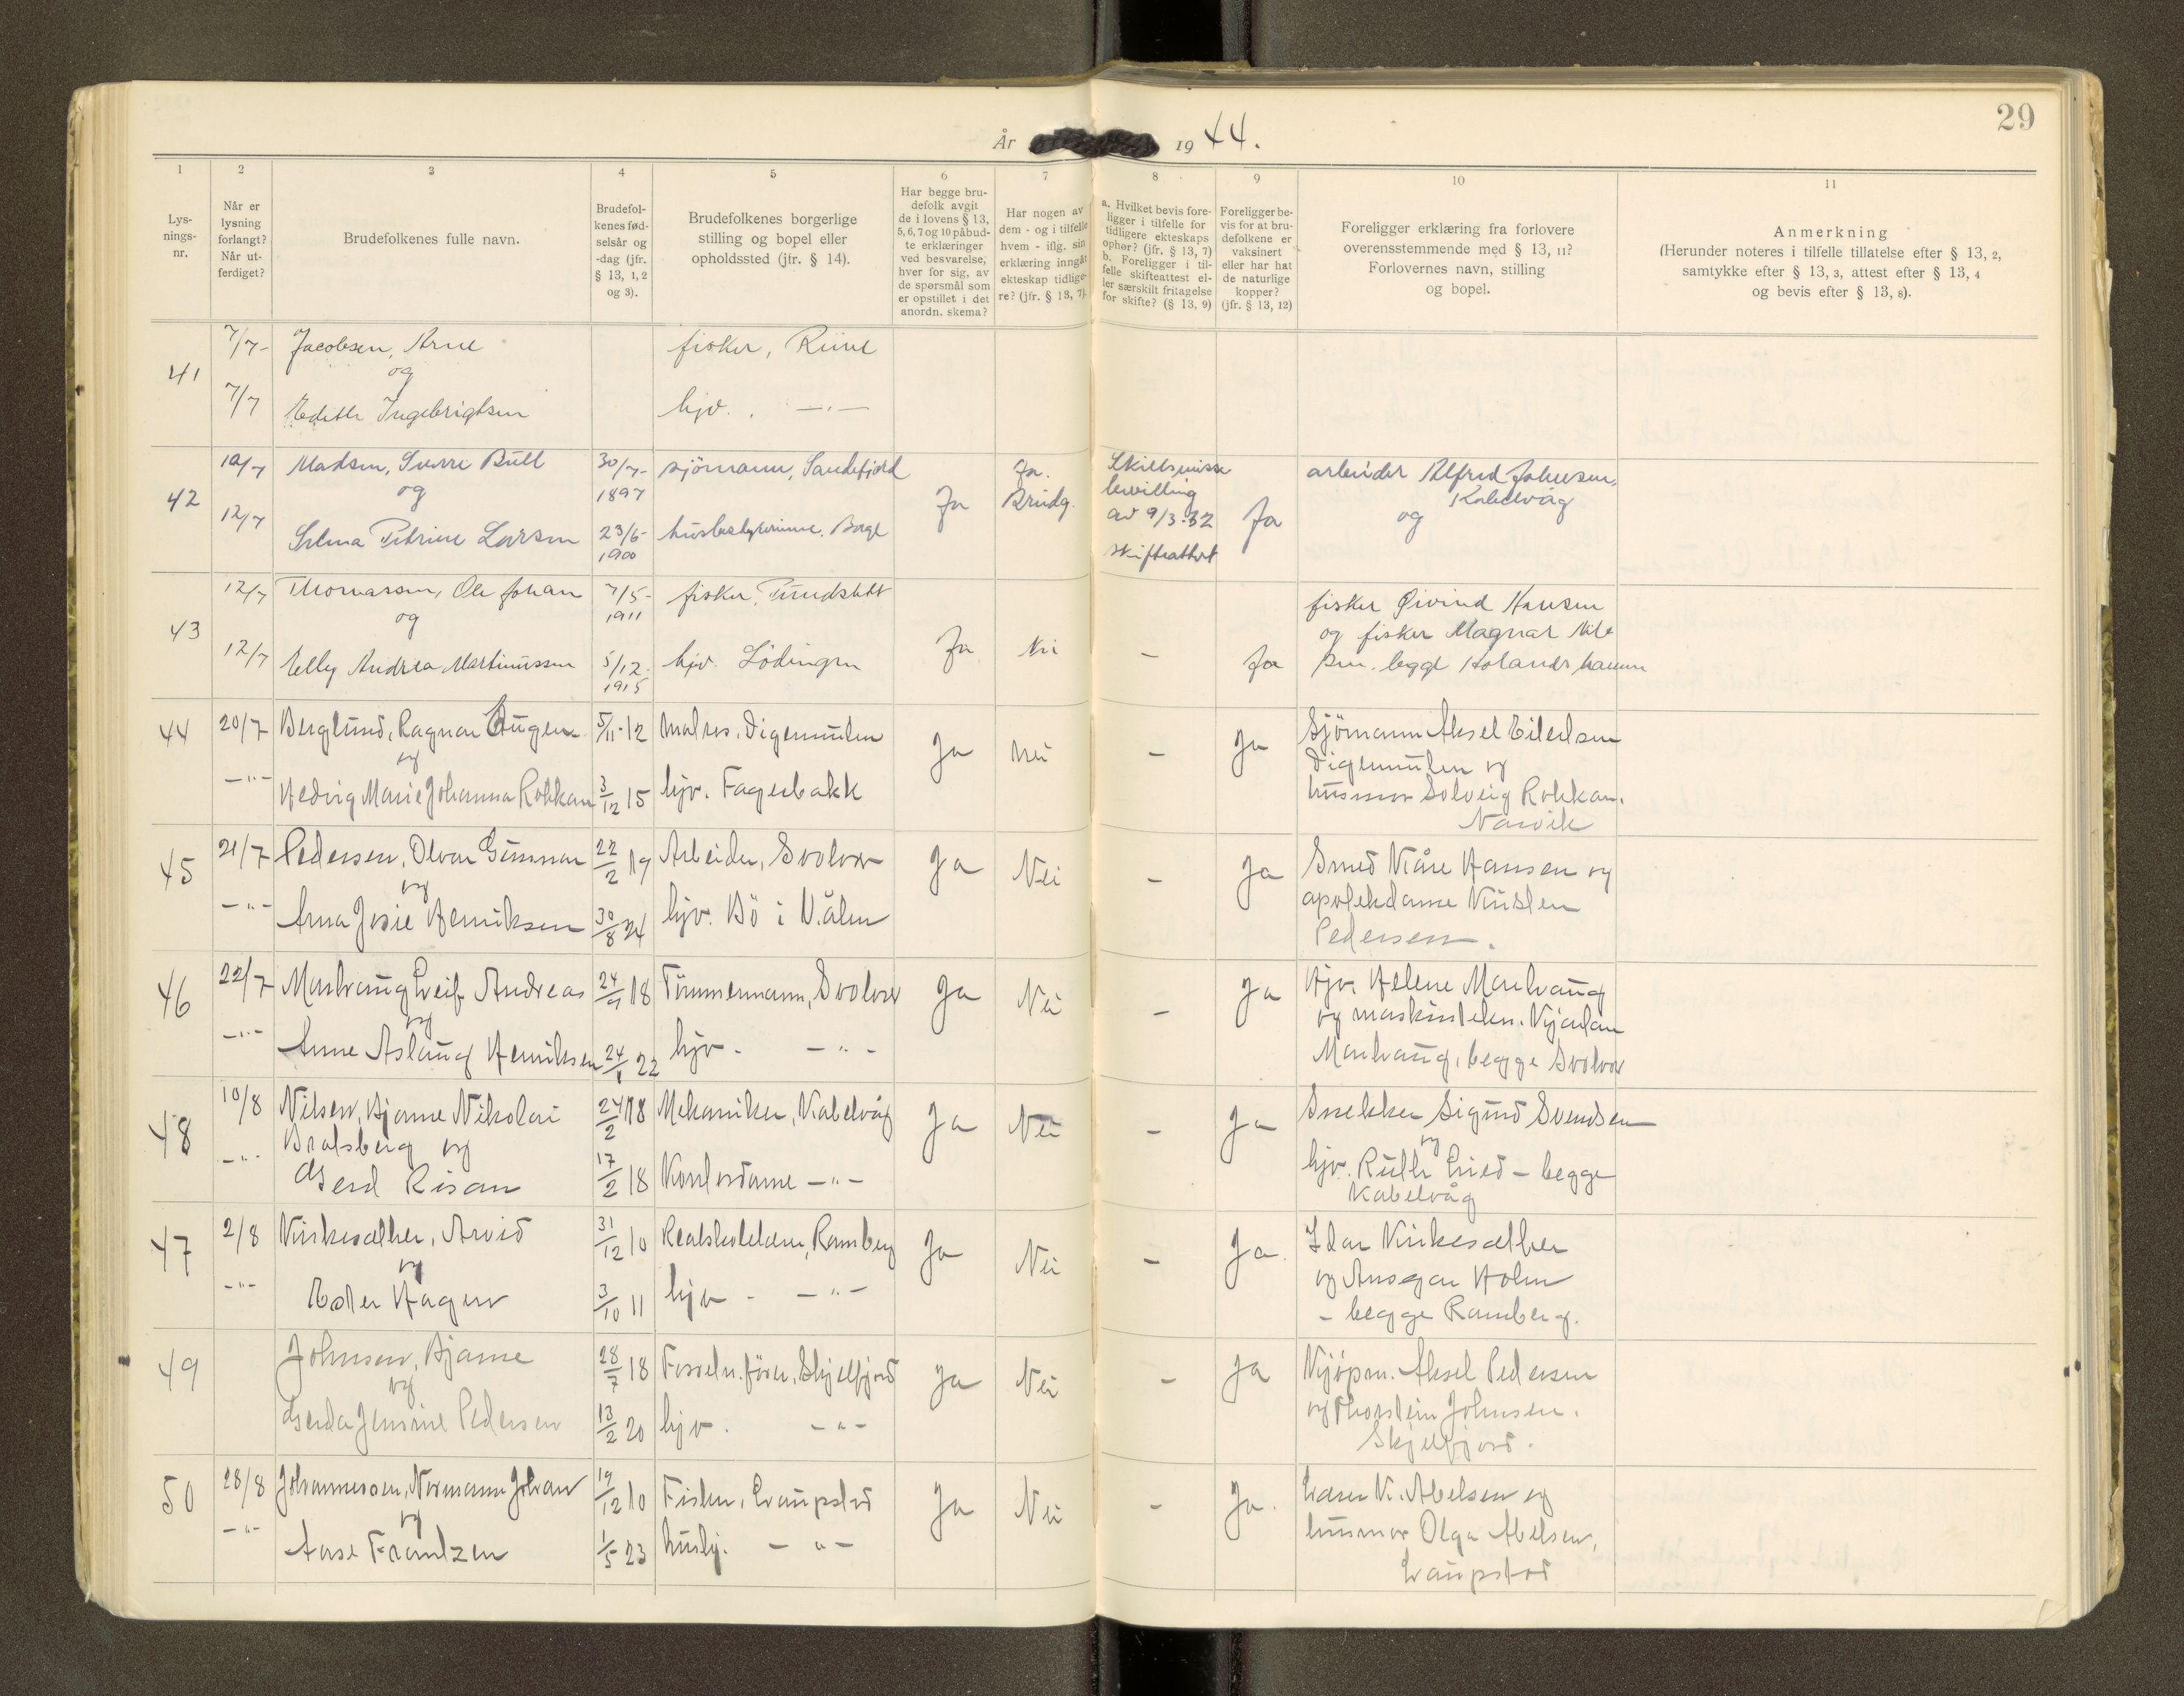 29
År 1944.
1 2 3 4 5 6 7 8 9 10 11
Lys-
nings-
nr.
Når er
lysning
forlangt?
Når ut-
ferdiget?
Brudefolkenes fulle navn.
Brudefol-
kenes fød-
selsår og
-dag (jfr.
§ 13, 1, 2
og 3).
Brudefolkenes borgerlige
stilling og bopel eller
opholdssted (jfr. § 14).
Har begge bru-
defolk avgit
de i lovens § 13,
5, 6, 7 og 10 påbud-
te erklæringer
ved besvarelse,
hver for sig, av
de spørsmål som
er opstillet i det
anordn. skema?
Har nogen av
dem - og i tilfelle
hvem - iflg. sin
erklæring inngåt
ekteskap tidlige-
re? (jfr. § 13, 7).
a. Hvilket bevis fore-
ligger i tilfelle for
tidligere ekteskaps
ophør? (jfr. § 13, 7)
b. Foreligger i til-
felle skifteattest el-
ler særskilt fritagelse
for skifte? (§ 13, 9)
Foreligger be-
vis for at bru-
defolkene er
vaksinert
eller har hat
de naturlige
kopper?
(jfr. § 13, 12)
Foreligger erklæring fra forlovere
overensstemmende med § 13, 11?
Forlovernes navn, stilling
og bopel.
Anmerkning
(Herunder noteres i tilfelle tillatelse efter § 13, 2,
samtykke efter § 13, 3, attest efter § 13, 4
og bevis efter § 13, 8).
41
7/7- Jacobsen, Arne fisker, Reine
og
7/7 Edith Ingebrigtsen hjv. . —"—
42
10/7 Madsen, Sverre Bull 30/7- 1897 sjömann, Sandefjord
og
12/7 Selma Petrine Larsen 23/6- 1900 husbestyrerinne. Borge
Ja
Ja. Brudg.
Skilsmisse
bevilling
av 9/3-32
skifteattest
Ja
arbeider Alfred Johnsen,
Kabelvåg
og
43
12/7 Thomassen, Ole Johan 7/5- 1911 fisker,
og
12/7 Elly Andrea Martinussen 5/12. 1915 hjv. Lödingen
Ja Nei - Ja
fisker Øivind Hansen
og fisker Magnar Nil
sen. begge Holandshamn
44
20/7 Berglund, Ragnar Eugen 5/11-12 Malres. Digermulen
og
—"— Hedvig Marie Johanna Rokkan 3/12 15 hjv. Fagerbakk
Ja Nei - Ja
Sjömann Aksel Eilertsen
Digermulen og
husmor Solveig Rokkan.
Narvik
45
21/7 Pedersen, Olvar Gunnar 22/2 19 Arbeider, Svolvær
og
—"— Anna Josie Henriksen 30/8 24 hjv. Bö i V.ålen
Ja Nei - Ja
Smed Kåre Hansen og
apotekdame Kirsten
Pedersen.
46
22/7 Leif Andreas 18 Tömmermann, Svolvær
og
—"— Anne Aslaug Henriksen 22 hjv. —"—
Ja Nei - Ja
Hjv. Helene
og maskintekn.
begge Svolvær
48
10/8 Nilsen, Bjarne Nikolai 24/2 18 Mekaniker, Kabelvåg
Bratsberg og
—"— Gerd Risan 17/2 18 Kontordame —"—
Ja Nei - Ja
Snekker Sigurd Svendsen
og
hjv. Ruth Lied - begge
Kabelvåg
47
2/8 Kirkesæther, Arvid 31/12 10 Realskolelærer, Ramberg
og
—"— Ester Hagen 3/10 11 hjv. —"—
Ja Nei - Ja.
Idar Kirkesæther
og Ansgar Holm
- begge Ramberg.
49
Johnsen, Bjarne 28/7 18 Skjelfjord
og
Gerda Jensine Pedersen 13/2 20 hjv. —"—
Ja Nei - Ja
Kjöpm. Aksel Pedersen
og Thorstein Johnsen.
Skjelfjord.
50
28/8 Johannessen, Normann Johan 19/12 10 Fisker, Laupstad
og
—"— Aase Frantzen 1/5 23 huslg. —"—
Ja Nei - Ja.
K. Abelsen og
husmor Olga Abelsen,
Laupstad